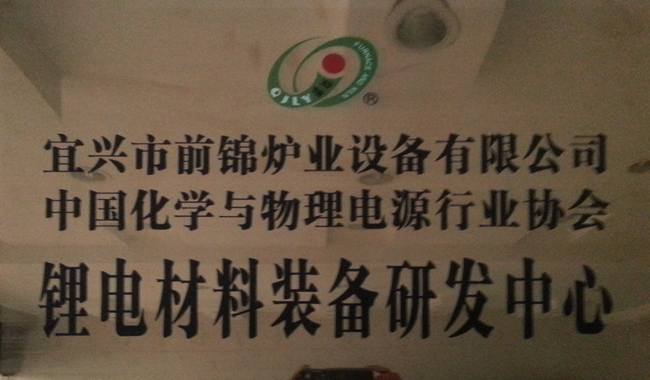 FURNACE AND KILN
QJLY
®
宜兴市前锦炉业设备有限公司
中国化学与物理电源行业协会
锂电材料装备研发中心